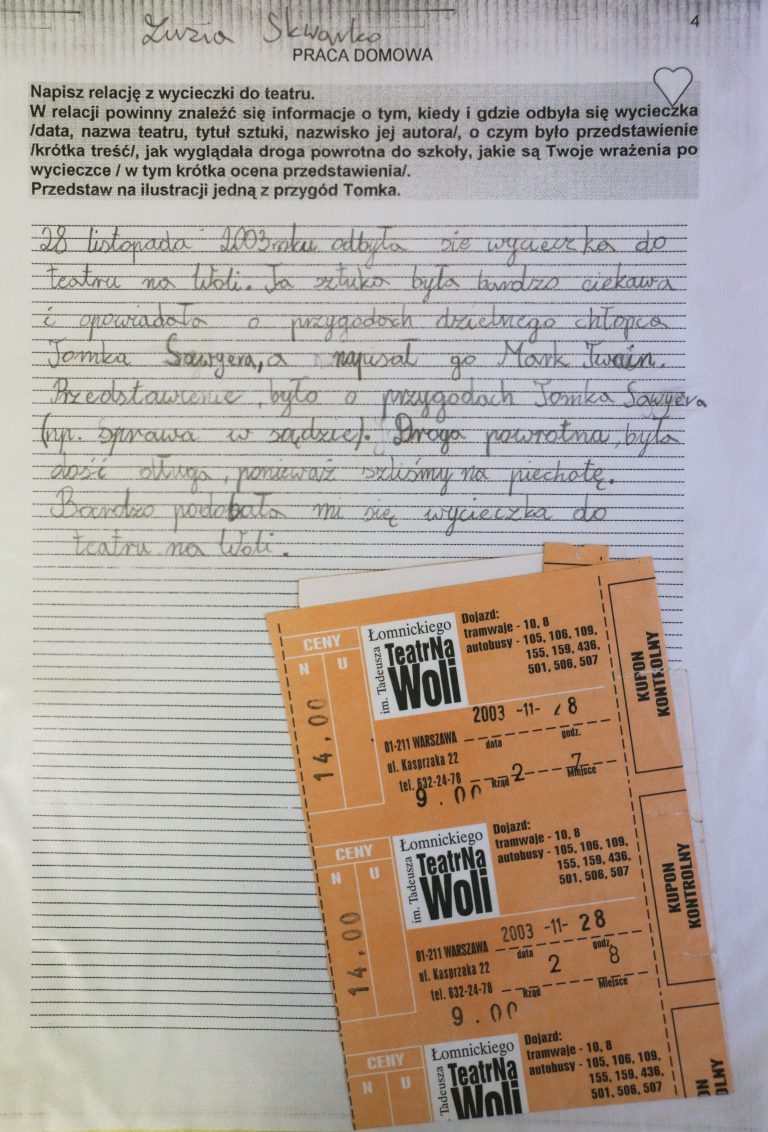 Zuzia Skwarko
4
PRACA DOMOWA
Napisz relację z wycieczki do teatru.
W relacji powinny znaleźć się informacje o tym, kiedy i gdzie odbyła się wycieczka
/data, nazwa teatru, tytuł sztuki, nazwisko jej autora/, o czym było przedstawienie
/krótka treść/, jak wyglądała droga powrotna do szkoły, jakie są Twoje wrażenia po
wycieczce / w tym krótka ocena przedstawienia/.
Przedstaw na ilustracji jedną z przygód Tomka.
28 listopada 2003 roku odbyła sie wycieczka do
teatru na Woli. Ta sztuka była bardzo ciekawa
i opowiadała o przygodach dzielnego chłopca
Tomka Sawyera, a napisał go Mark Twain.
Przedstawienie było o przygodach Tomka Sawyera
(np. sprawa w sądzie). Droga powrotna była
dość długa, ponieważ szliśmy na piechotę.
Bardzo podobała mi się wycieczka do
teatru na Woli.
CENY
N U
14,00
im. Tadeusza
Łomnickiego
TeatrNa
Woli
Dojazd:
tramwaje - 10, 8
autobusy - 105, 106, 109,
155, 159, 436,
501, 506, 507
2003 -11- 28
data godz.
01-211 WARSZAWA
ul. Kasprzaka 22
tel. 632-24-78
9.00
2 7
Rząd Miejsce
KUPON
KONTROLNY
CENY
N U
14,00
im. Tadeusza
Łomnickiego
TeatrNa
Woli
Dojazd:
tramwaje - 10, 8
autobusy - 105, 106, 109,
155, 159, 436,
501, 506, 507
2003 -11- 28
data godz.
01-211 WARSZAWA
ul. Kasprzaka 22
tel. 632-24-78
9.00
2 8
Rząd Miejsce
KUPON
KONTROLNY
CENY
N U
im. Tadeusza
Łomnickiego
TeatrNa
Woli
Dojazd:
tramwaje - 10, 8
autobusy - 105, 106, 109,
155, 159, 436,
501, 506, 507